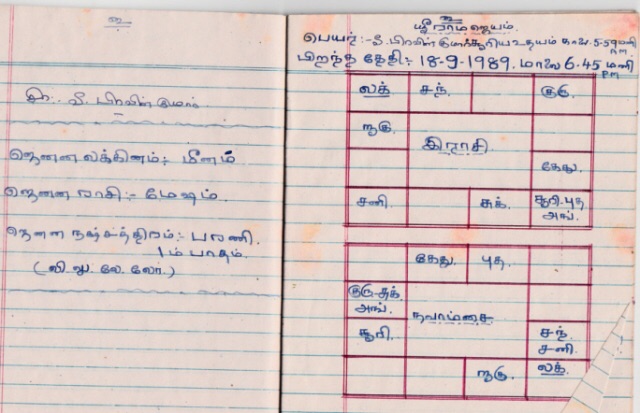 உ
வீ. பிரவின் குமார்
ஜெனன லக்கினம்:- மீனம்
ஜெனன ராசி:- மேஷம்
ஜெனன நஷ்சத்திரம்:- பரணி.
1ம் பாதம்.
(லி லு லே லோ.)
உ
ஸ்ரீ ராம ஜெயம்
பெயர்:- வீ. பிரவின் குமார் சூரிய உதயம் காலை 5-59 மணி
பிறந்த தேதி:- 18-9-1989. மாலை 6.45 மணி
லக் சந். குரு
ராகு இராசி. கேது.
சனி. சுக். சூரி-புத
அங்.
கேது. புத.
குரு-சுக்
அங். நவாம்சை
சூரி. சந்
சனி.
ராகு. லக்.